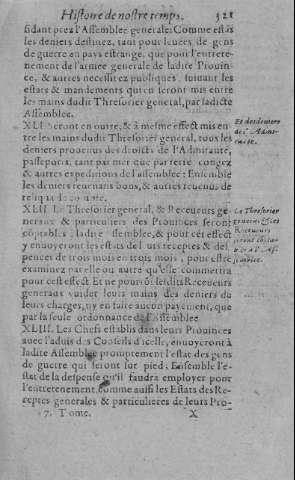 Histoire de nostre temps. 321
sidant prez l'Assemblee generale: Comme estās
les deniers destinez, tant pour luees de gens
de guerre en pays estrange, que pour l'entrete-
nement de l'armee generale de ladite Prouin
ce, & autres necessitez publiques, suiuant les
estats & mandements qui en seront mis entre
les mains dudit Thresorier general, par ladicte
Assemblee.
XLI. Seront en outre, & à mesme effect mis en
tre les mains dudit Thresorier general, tous les
deniers prouenus des droicts de l'Admirauté,
passeports, tant par mer que par terre congez
& autres expeditions de l'assemblee: Ensemble
les deniers reuenans bons, & autres reuenus, de
Et des deniers
de l'Admi-
rauté.
XLII. Le Thresorier general, & Receueurs ge-
neraux & particuliers des Prouinces seront
cōptables à ladite Assemblee, & pour cét effect
y enuoyeront les estats de leurs receptes & des-
pences de trois mois en trois mois, pour estre
examinez par elle ou autre qu'elle commettra
pour cest effect: Et ne pourrōt lesdits Receueurs
generaux vuider leurs mains des deniers du
leurs charges, ny en faire aucun payement, que
par la seule ordonnance de l'Assemblee.
Le Thresorier
general & les
Receueurs
seront cōptab.
XLIII. Les Chefs establis dans leurs Prouinces
auec l'aduis des Conseils d'icelle, enuoyeront à
ladite Assemblee promptement l'estat des gens
de guerre qui seront sur pied: Ensemble l'e-
stat de la despense qu'il faudra employer pour
l'entretenement, comme aussi les Estats des Re-
ceptes generales & particulieres de leurs Pro-
7. Tome. X